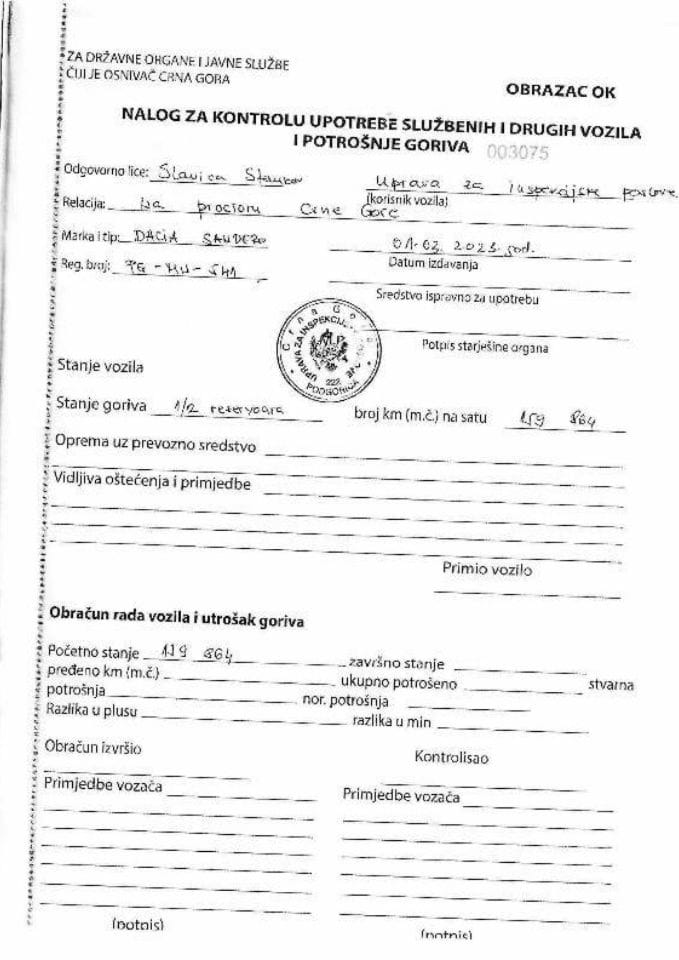 ZA DRŽAVNE ORGANE I JAVNE SLUŽBE
ČIJI JE OSNIVAČ CRNA GORA
OBRAZAC OK
NALOG ZA KONTROLU UPOTREBE SLUŽBENIH I DRUGIH VOZILA
I POTROŠNJE GORIVA 003075
Odgovorno lice: Slavica Uprava za inspekcijske poslove
(korisnik vozila)
Relacija: Na prostoru Crne Gore
Marka i tip: DACIA SANDERO 01.03.2023.god.
Datum izdavanja
Reg. broj: PG-
Sredstvo ispravno za upotrebu
Crna Gora
UPRAVA ZA INSPEKCIJSKE
M.P.
222
PODGORICA
Potpis starješine organa
Stanje vozila
Stanje goriva 1/2 rezervoara broj km (m.č.) na satu 864
Oprema uz prevozno sredstvo
Vidljiva oštećenja i primjedbe
Primio vozilo
Obračun rada vozila i utrošak goriva
Početno stanje 864 završno stanje
pređeno km (m.č.) ukupno potrošeno stvarna
potrošnja nor. potrošnja
Razlika u plusu razlika u min
Obračun izvršio Kontrolisao
Primjedbe vozača Primjedbe vozača
(potpis) (potpis)